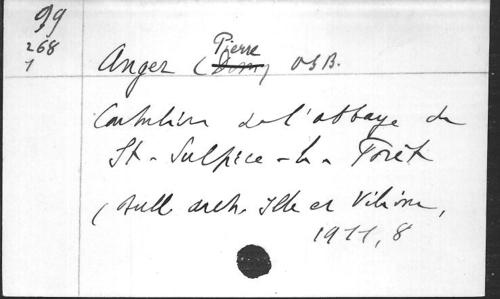 99
268
1
Anger (Pierre ~~Dom~~) OSB.
Cartulaire de l'abbaye de
St-Sulpice-la-Forêt
(Bull arch. Ille et Vilaine,
1911, 8